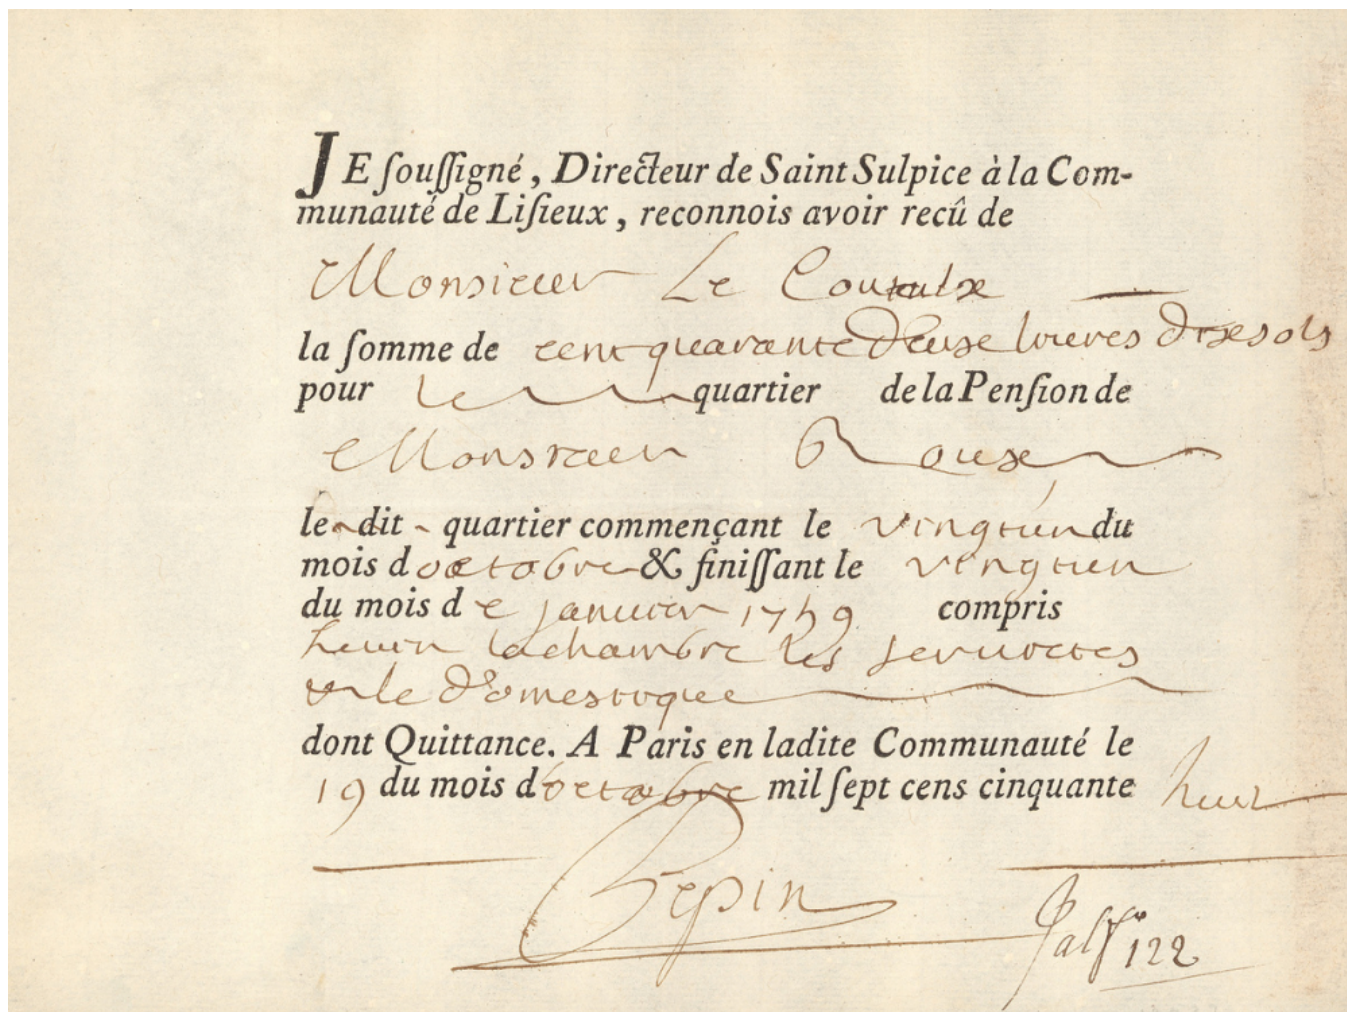 JE souſſigné, Directeur de Saint Sulpice à la Com-
munauté de Liſieux, reconnois avoir recû de
Monsieur Le Couteulx
la ſomme de cent quarante deuse livres dixsols
pour le quartier de la Penſion de
Monsieur Rouse
le dit quartier commençant le vingtien du
mois doctobre & finiſſant le vingtien
du mois de janvier 1759 compris
la chambre les serviettes
le domestique
dont Quittance. A Paris en ladite Communauté le
19 du mois doctobre mil ſept cens cinquante huit
Pepin
122